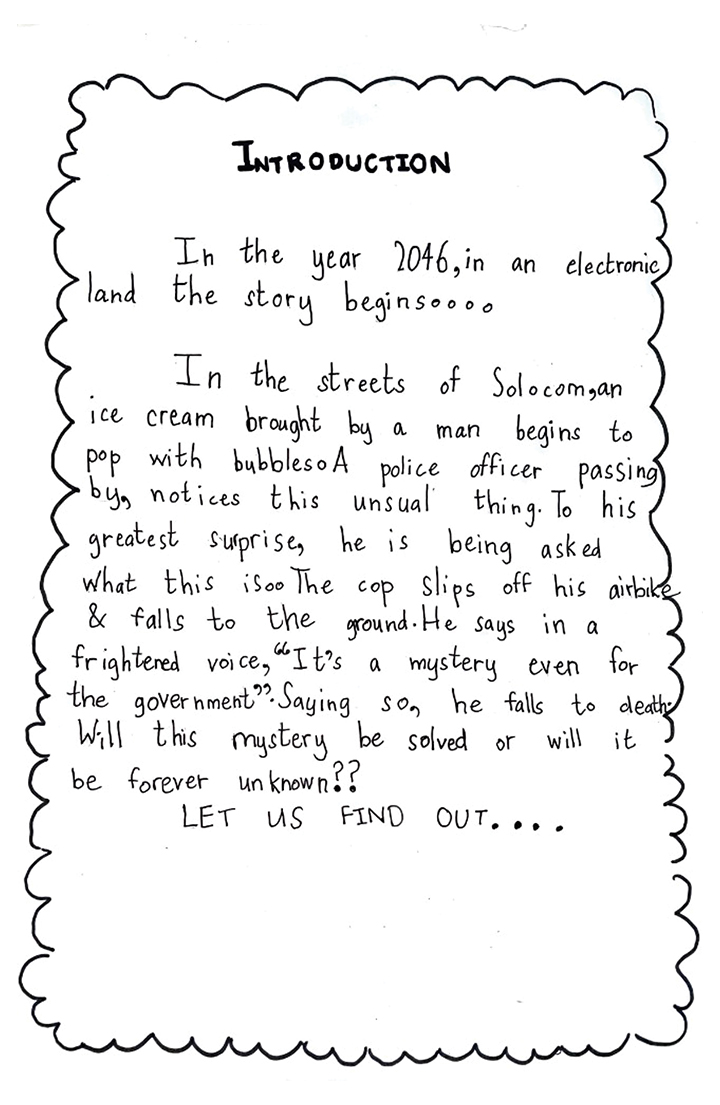 INTRODUCTION
In the year 2046, in an electronic
land the story begins....
In the streets of Solocom, an
ice cream brought by a man begins to
pop with bubbles. A police officer passing
by, notices this unsual thing. To his
greatest surprise, he is being asked
what this is.. The cop slips off his airbike
& falls to the ground. He says in a
frightered voice, "It's a mystery even for
the government". Saying so, he falls to death.
Will this mystery be solved or will it
be forever unknown??
LET US FIND OUT....